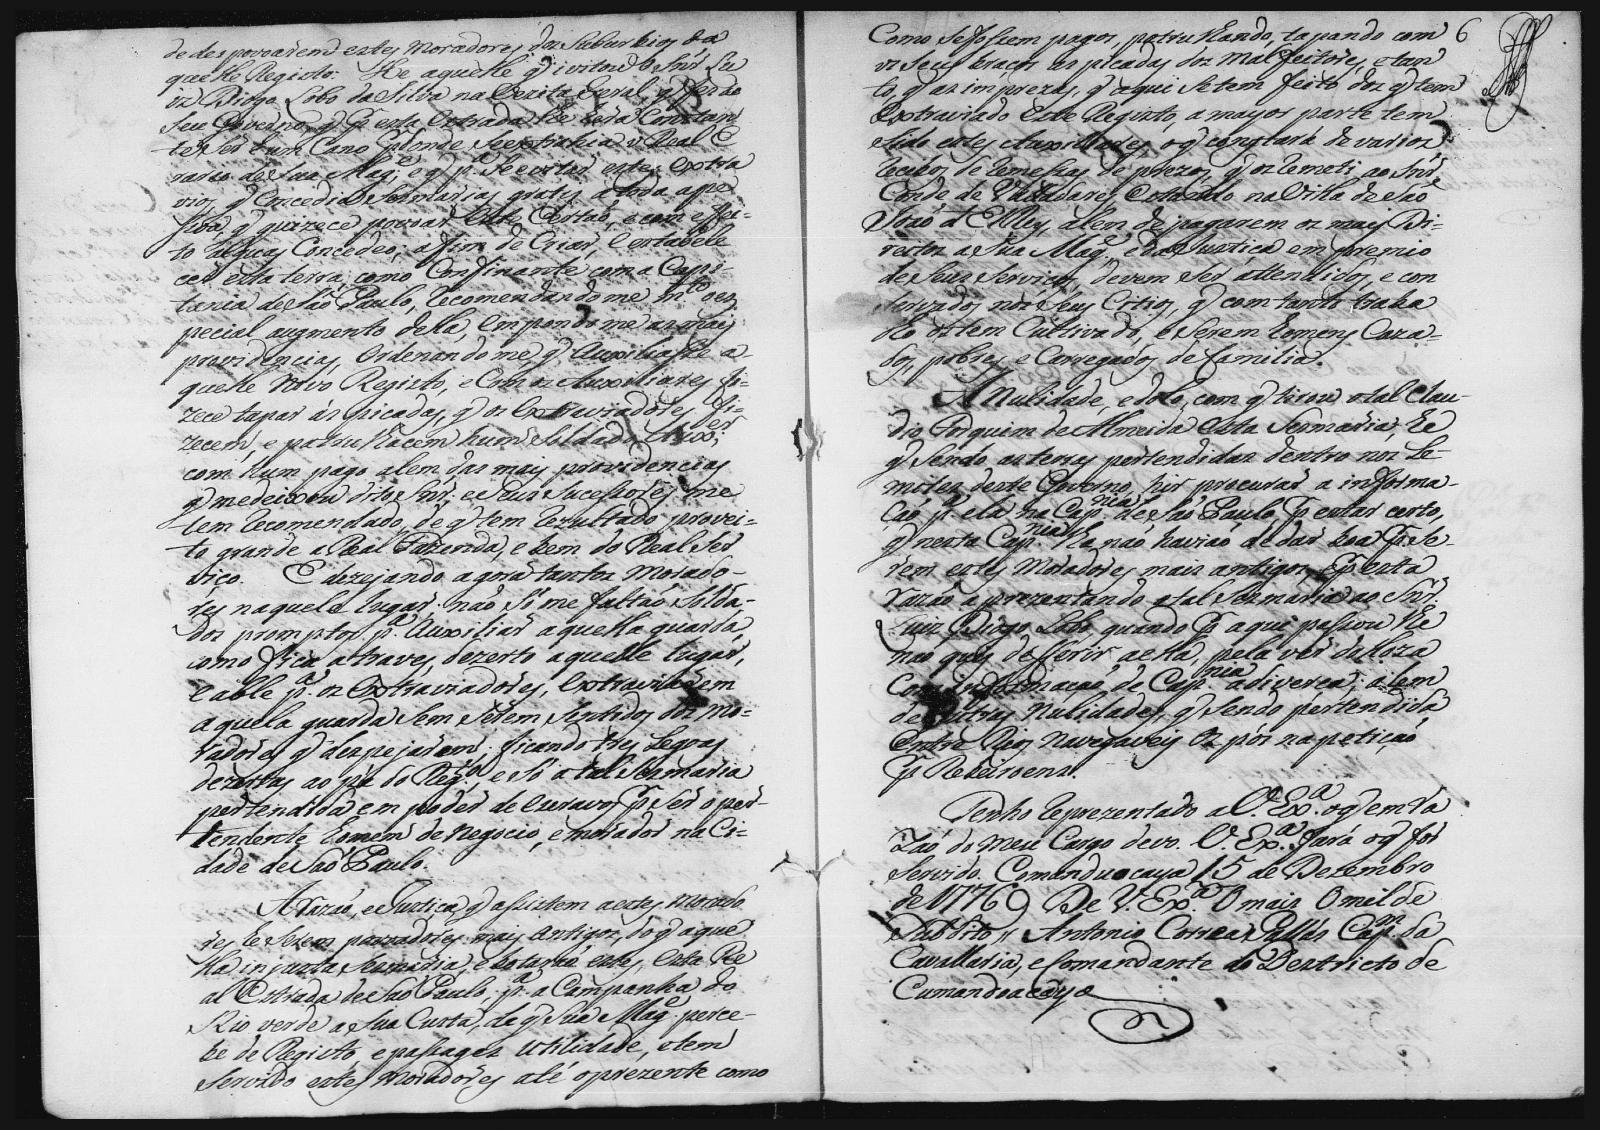 de despovoarem estes Moradores dos Suburbios da
quelle Registo. He aquelle q̃ ivitou o Snr̃ Lu
iz Diogo Lobo da Silva na vezita Geral q̃ fes ao
seu Governo, q̃ p.r esta Estrada
te ser hum Cano p.r onde se extrahia o Real E
rario de Sua Mag.e, e q̃ p.a se evitar estes extra
vios, q̃ Concedia Sesmarias gratis a toda a pes
soa, q̃ quizece povoar este Certaõ, e com effei-
to alguas Concedeo; a fim de Criar, e estabele
cer esta terra, como Confinante com a Capi-
tania de Saõ Paulo, recomendandome m.to o es
pecial augmento della, e impondome as mais
providencias, Ordenandome, q̃ Auxiliasse a-
quelle novo Registo, e Com os Auxiliares fi-
zece tapar as picadas, q̃ os extraviadores fi-
zecem, e patrulhacem hum Soldado Aux.er
com hum pago alem das mais providencias
q̃ me deixou o dito Snr̃. e seus Sucessores me
tem recomendado, de q̃ tem rezultado provei-
to grande a Real Fazenda, e bem do Real Ser
viço. E dezejando agora tantos Morado-
res naquele lugar, não só me faltaõ Solda-
dos promptos p.a Auxiliar aquella guarda,
como fica a traves, dezerto aquelle lugar,
e able p.a os Extraviadores, extraviarem
aquela guarda sem serem sentidos dos Mo-
radores q̃ despejarem; ficando tres Legoas
dezertas ao pé do Reg.to, e só a tal Sesmaria
pertendida em poder de escravos p.r ser o per-
tendente homem de negocio, e morador na Ci-
dade de Saõ Paulo.
A razaõ, e Justiça q̃ assistem a estes Morado
res he serem povoadores mais antigos, do q̃ aque
lla injusta Sesmaria, e botarem estes, esta Re
al Estrada de Saõ Paulo, p.a a Campanha do
Rio verde a sua Custa, de q̃ Sua Mag.e perce-
be de Registo, e passages utilidade, e tem
servido estes Moradores até o prezente como
Como se fossem pagos, patrulhando, tapando com 6
os seus braços as picadas dos malfeitores, e tan
to, q̃ as imprezas, q̃ aqui se tem feito dos q̃ tem
extraviado este Registo, a mayor parte tem
sido estes Auxiliares, o q̃ constará de varios
recibos de remessas de prezos, q̃ os remeti ao Snr̃.
Conde de Valladares, Estando na Villa de Saõ
Joaõ d'El Rey, alem de pagarem os mais Di-
reitos a Sua Mag.e e da Justiça em premio
de seus serviços, devem ser attendidos, e con
servados nos seus Citios, q̃ com tanto traba
lho os tem Cultivado, e serem homens Caza-
dos, pobres, e Carregados de familia.
A Nulidade, e dolo, com q̃ tirou o tal Clau-
dio Forquim de Almeida esta Sesmaria, he
q̃ sendo as terras pertendidas dentro nos Le-
mites deste Governo, hir procurar a informa-
çaõ p.a ela na Cap.nia de Saõ Paulo p.r estar certo,
q̃ nesta Cap.nia lha naõ haviaõ de dar boa p.r se-
rem estes Moradores mais antigos, E p.r esta
razaõ aprezentando a tal Sesmaria ao Snr̃.
Luiz Diogo Lobo quando p.r aqui passou lhe
naõ quis defferir a ella, pela ver
Com informaçaõ de Cap.nia adiverça; alem
de outras Nulidades, q̃ sendo pertendida
entre Rios navegaveis os pós na petiçaõ
p.r Ribeiroens.
Tenho reprezentado a V. Ex.a o q̃ em ra
zaõ do meu Cargo devo. V. Ex.a fará o q̃ for
servido. Comanducaya 15 de Dezembro
de 1776 // De V. Ex.a O mais Omilde
Subdito // Antonio Correa Cap.m da
Cavallaria, e Comandante do Destricto de
Cumandoacaya